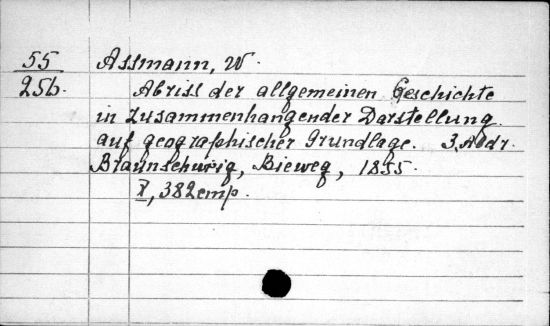 55 Assmann, W.
256. Abriss der allgemeinen Geschichte
in zusammenhangender Darstellung
auf geographischer Grundlage. 3. Abdr.
Braunschweig, Bieweg, 1855.
X, 382 стр.